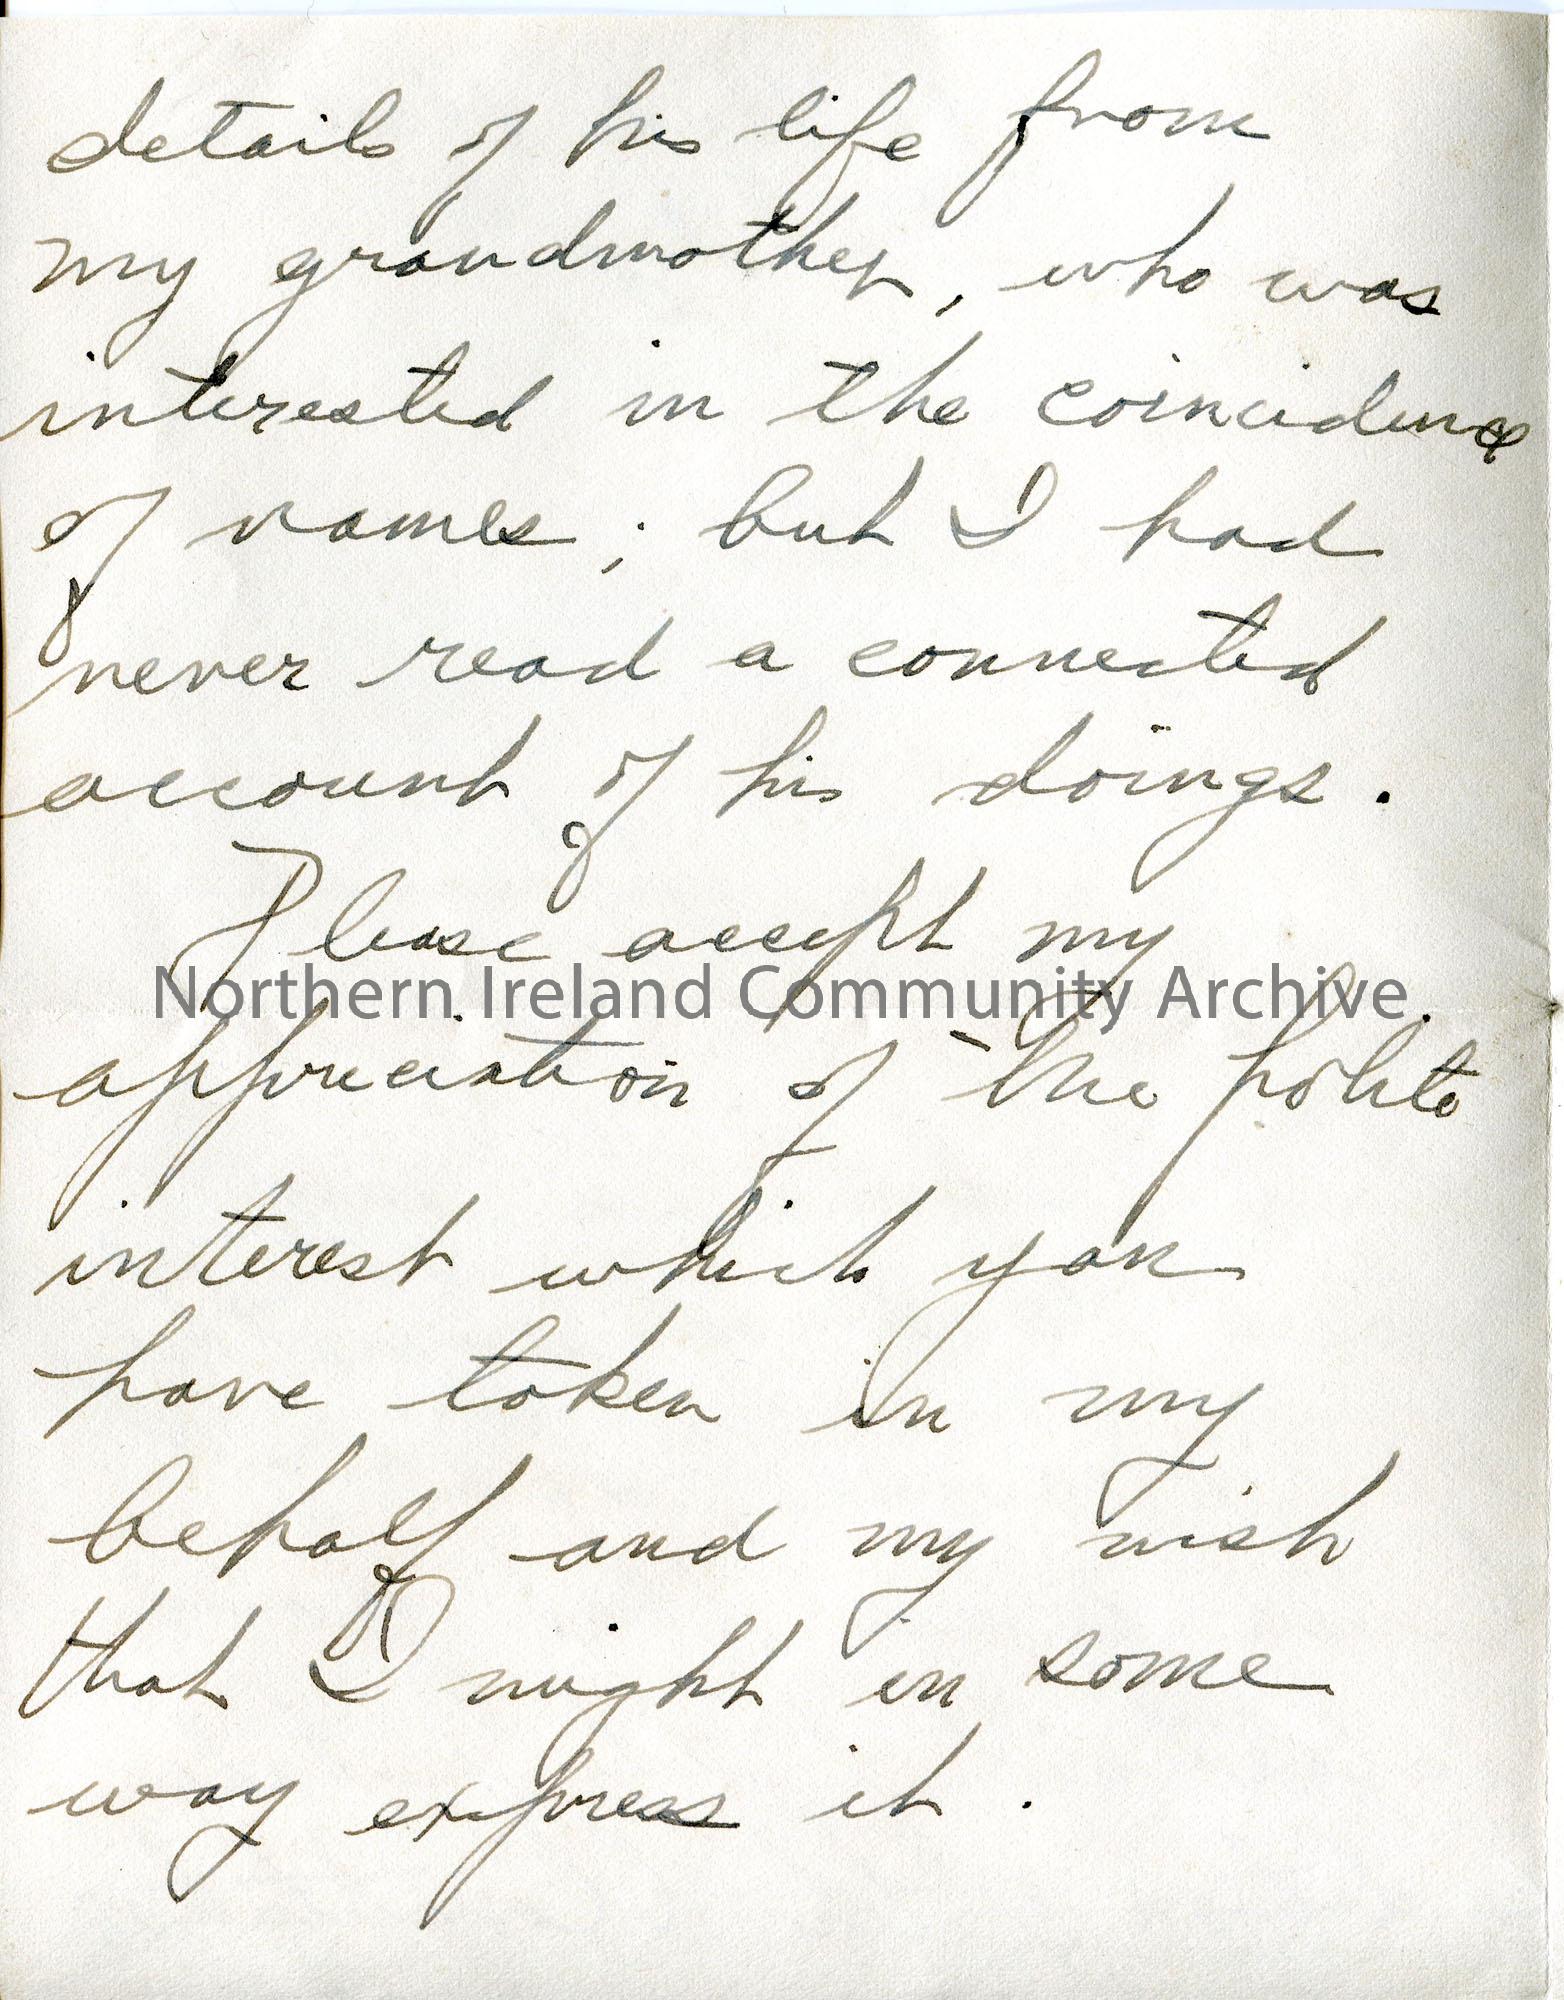 details of his life from
my grandmother, who was
interested in the coincidence
of names; but I had
never read a connected
account of his doings.
Please accept my
Northern Ireland Community Archive
appreciation of the polite
interest which you
have taken in my
behalf and my wish
that I might in some
way express it.